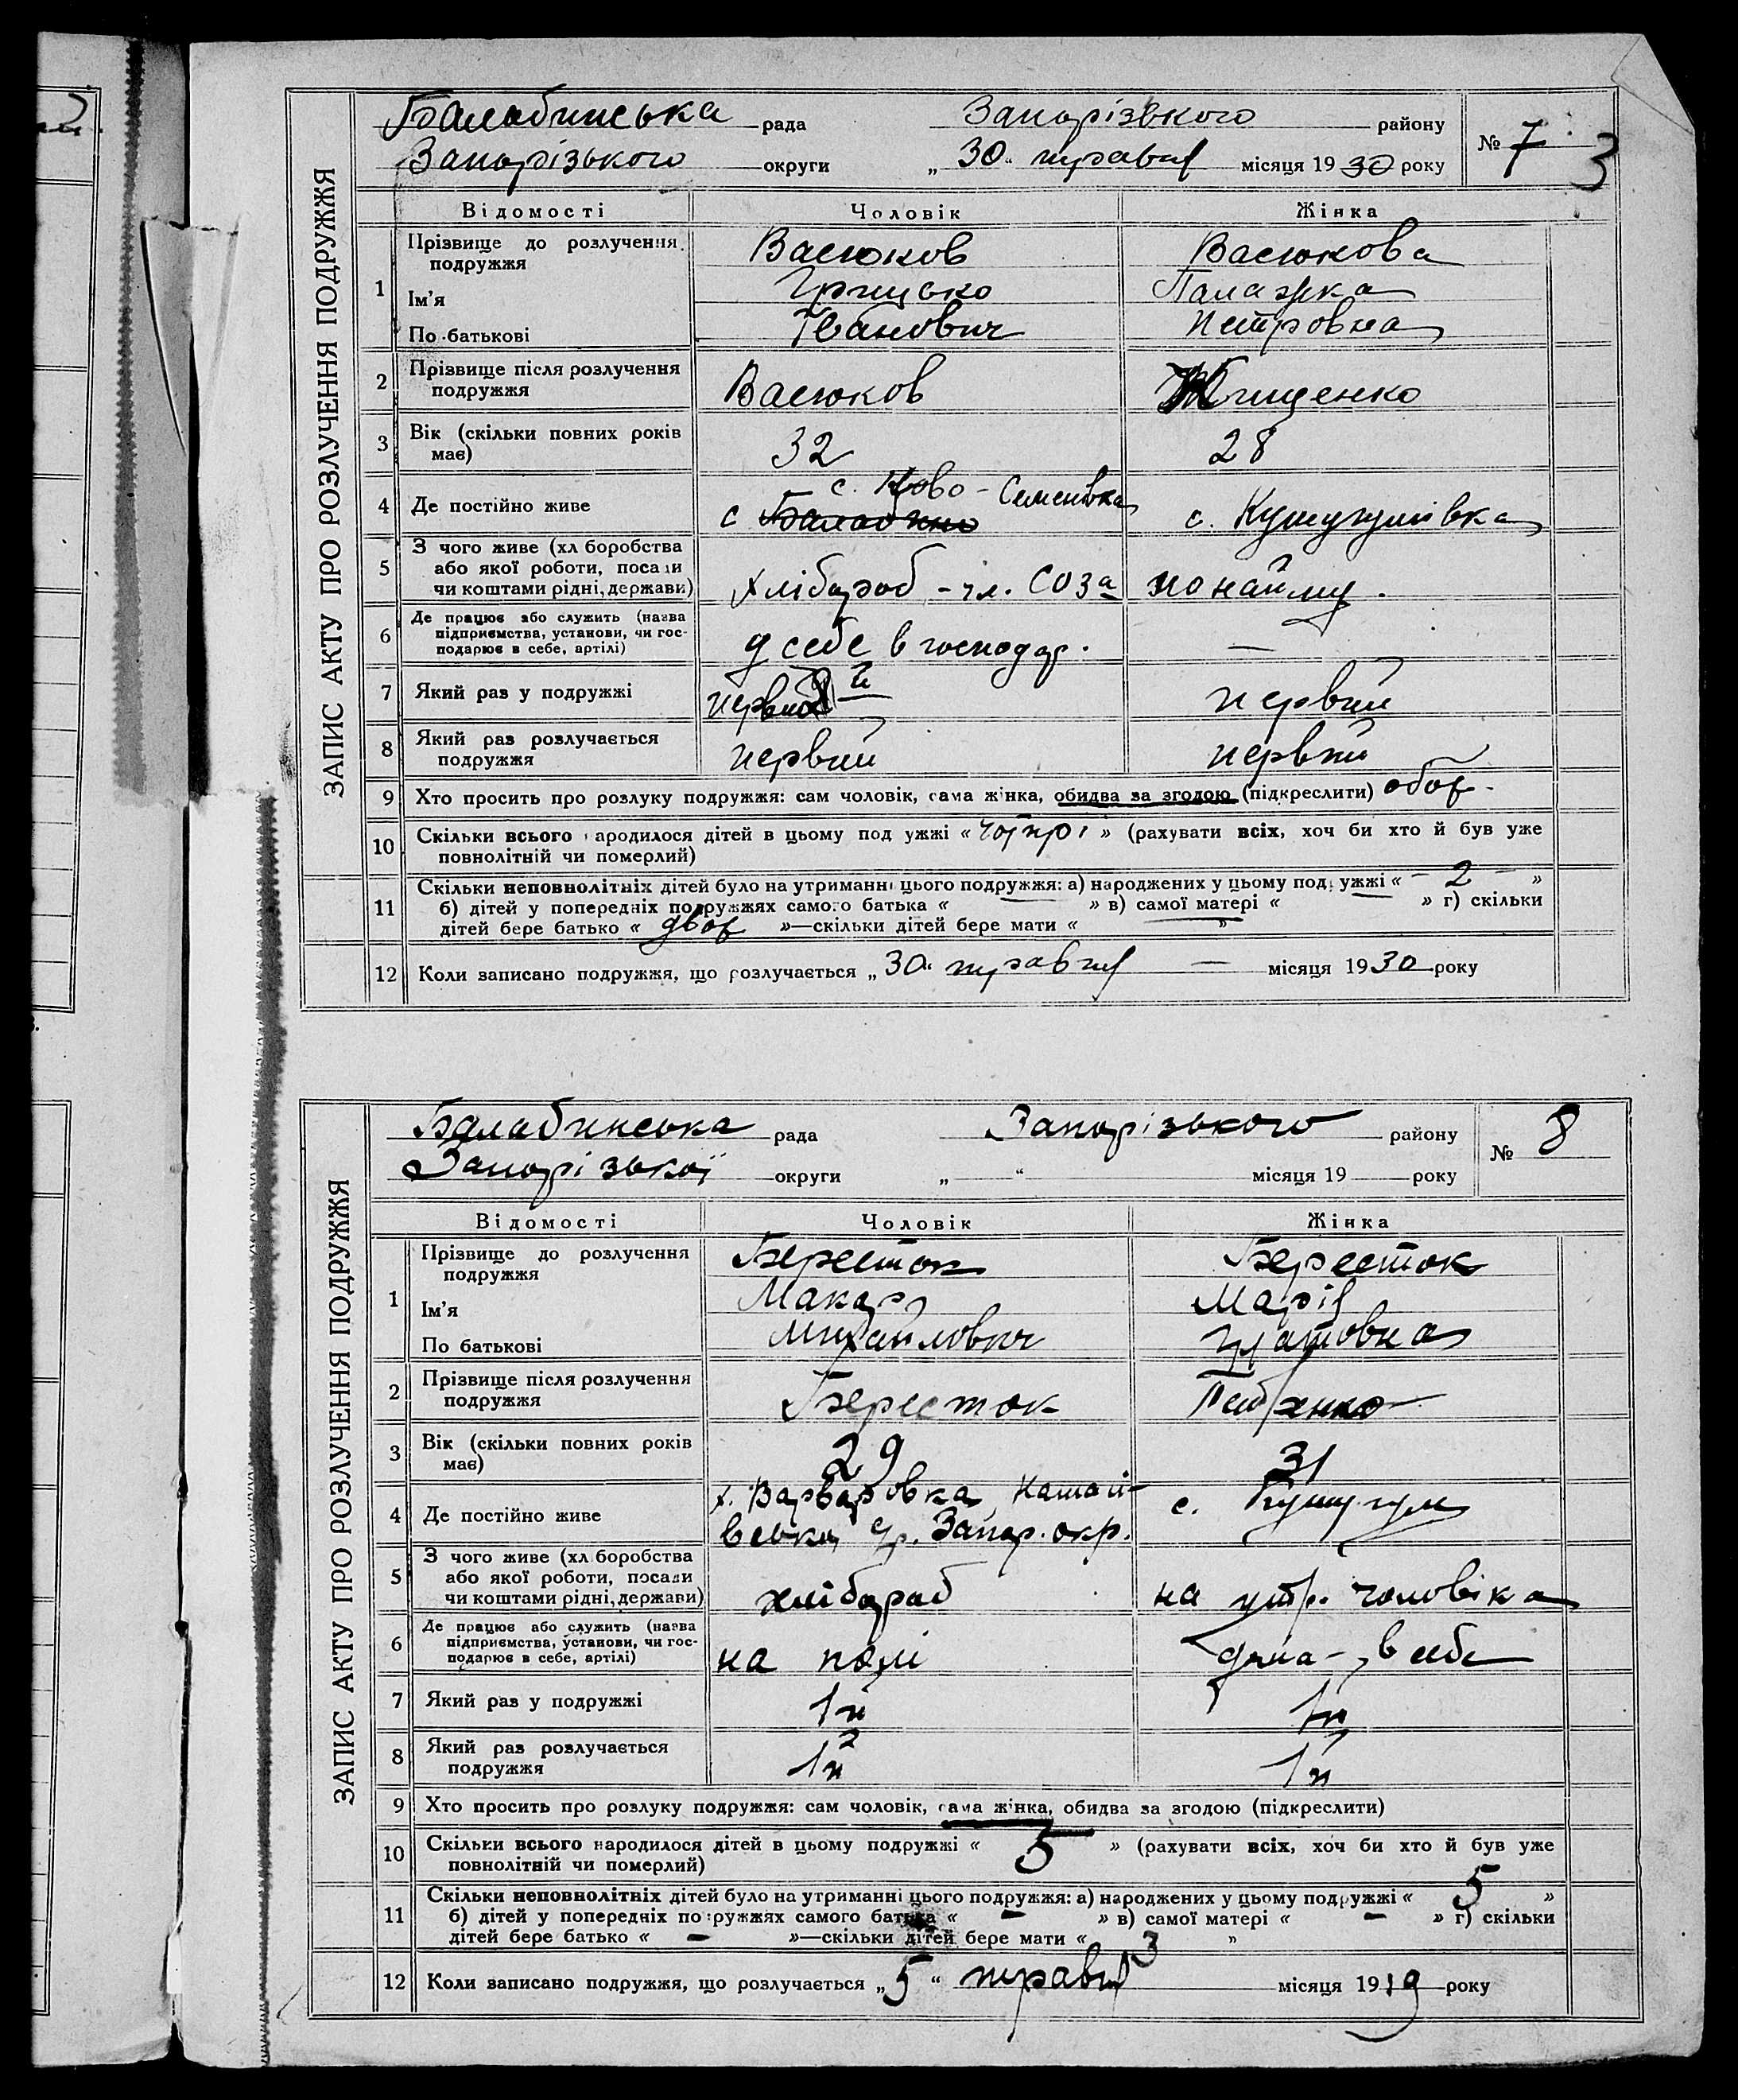 ЗАПИС АКТУ ПРО РОЗЛУЧЕННЯ ПОДРУЖЖЯ
Балабинська рада Запорізького району
Запорізького округи „30“ травня місяця 1930 року
№ 7
3
Відомості Чоловік Жінка
1 Прізвище до розлучення подружжя Васюков Васюкова
Ім'я Грицько Палажка
По-батькові Іванович Петровна
2 Прізвище після розлучення подружжя Васюков
3 Вік (скільки повних років має) 32 28
4 Де постійно живе с. Ново-Семенівка с. Кушугумівка
5 З чого живе (хліборобства або якої роботи, посади чи коштами рідні, держави) Хлібороб - чл. СОЗа по найму.
6 Де працює або служить (назва підприємства, установи, чи господарює в себе, артілі) у себе в господар. —
7 Який раз у подружжі первий
8 Який раз розлучається подружжя первий первий
9 Хто просить про розлуку подружжя: сам чоловік, сама жінка, обидва за згодою (підкреслити) обоє
10 Скільки всього народилося дітей в цьому подружжі « чотирі » (рахувати всіх, хоч би хто й був уже
повнолітній чи померлий)
11 Скільки неповнолітніх дітей було на утриманні цього подружжя: а) народжених у цьому подружжі « 2 »
б) дітей у попередніх подружжях самого батька « — » в) самої матері « — » г) скільки
дітей бере батько « двоє »—скільки дітей бере мати « »
12 Коли записано подружжя, що розлучається „30“ травня — місяця 1930 року
ЗАПИС АКТУ ПРО РОЗЛУЧЕННЯ ПОДРУЖЖЯ
Балабинська рада Запорізького району
Запорізької округи „ “ місяця 19 року
№ 8
Відомості Чоловік Жінка
1 Прізвище до розлучення подружжя Бересток Бересток
Ім'я Макар Марія
По батькові Михайлович
2 Прізвище після розлучення подружжя Бересток
3 Вік (скільки повних років має) 29 31
4 Де постійно живе х. Варваровка с. Кушугум
Запор. окр.
5 З чого живе (хліборобства або якої роботи, посади чи коштами рідні, держави) хлібороб на утр. чоловіка
6 Де працює або служить (назва підприємства, установи, чи господарює в себе, артілі) на полі дома - в себе
7 Який раз у подружжі 1й 1й
8 Який раз розлучається подружжя 1й 1й
9 Хто просить про розлуку подружжя: сам чоловік, сама жінка, обидва за згодою (підкреслити)
10 Скільки всього народилося дітей в цьому подружжі « 5 » (рахувати всіх, хоч би хто й був уже
повнолітній чи померлий)
11 Скільки неповнолітніх дітей було на утриманні цього подружжя: а) народжених у цьому подружжі « 5 »
б) дітей у попередніх подружжях самого батька « - » в) самої матері « - » г) скільки
дітей бере батько « - »—скільки дітей бере мати « 3 »
12 Коли записано подружжя, що розлучається „5“ травня місяця 1919 року